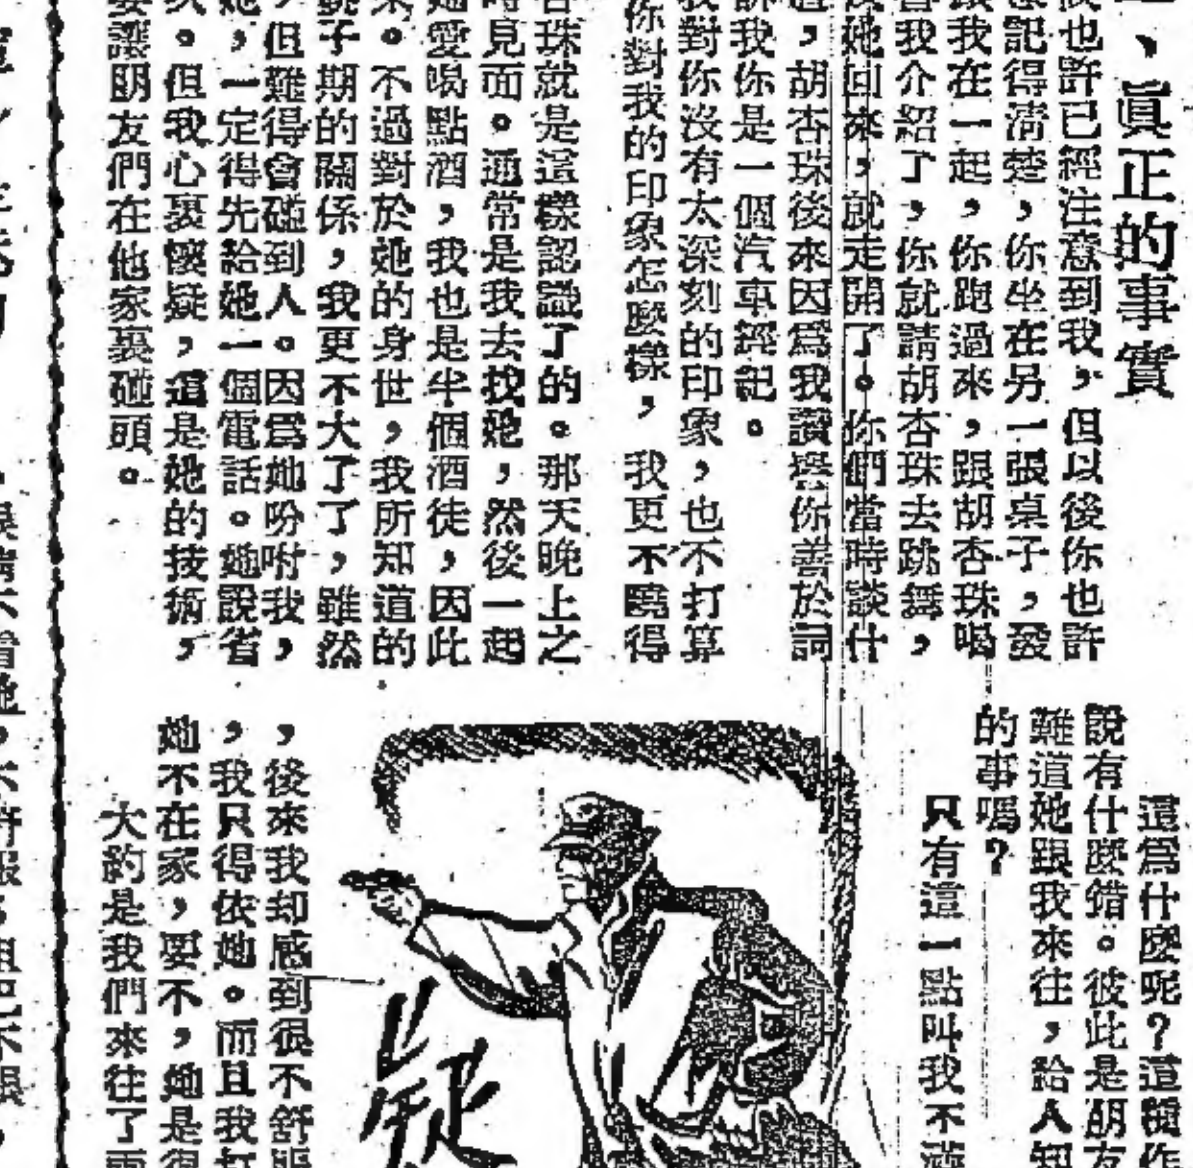 、眞正的事實
也許已經注意到我,但以後你也許
記得清楚,你坐在另一張桌子,發
跟我在一起,你跑過來,跟胡杏珠喝
我介紹了,你就請胡杏珠去跳舞,
她回來,就走開了。你們當時談什
,胡杏珠後來因爲我讚譽你善於詞
訴我你是一個汽車經記。
我對你沒有太深刻的印象,也不打算
你對我的印象怎麼樣,我更不曉得
杏珠就是這樣認識了的。那天晚上之
時見面。通常是我去找她,然後一起
她愛喝點酒,我也是半個酒徒,因此
來。不過對於她的身世,我所知道的
子期的關係,我更不大了了,雖然
,但難得會碰到人。因爲她吩咐我,
她,一定得先給她一個電話。她說省
。但我心裏懷疑,這是她的技術,
要讓朋友們在他家裏碰頭。
這爲什麼呢?這種作
說有什麼錯。彼此是朋友
難道她跟我來往,給人知
的事嗎?
只有這一點叫我不滿
,後來我却感到很不舒服
,我只得依她。而且我打
她不在家,要不,她是很
大約是我們來往了兩